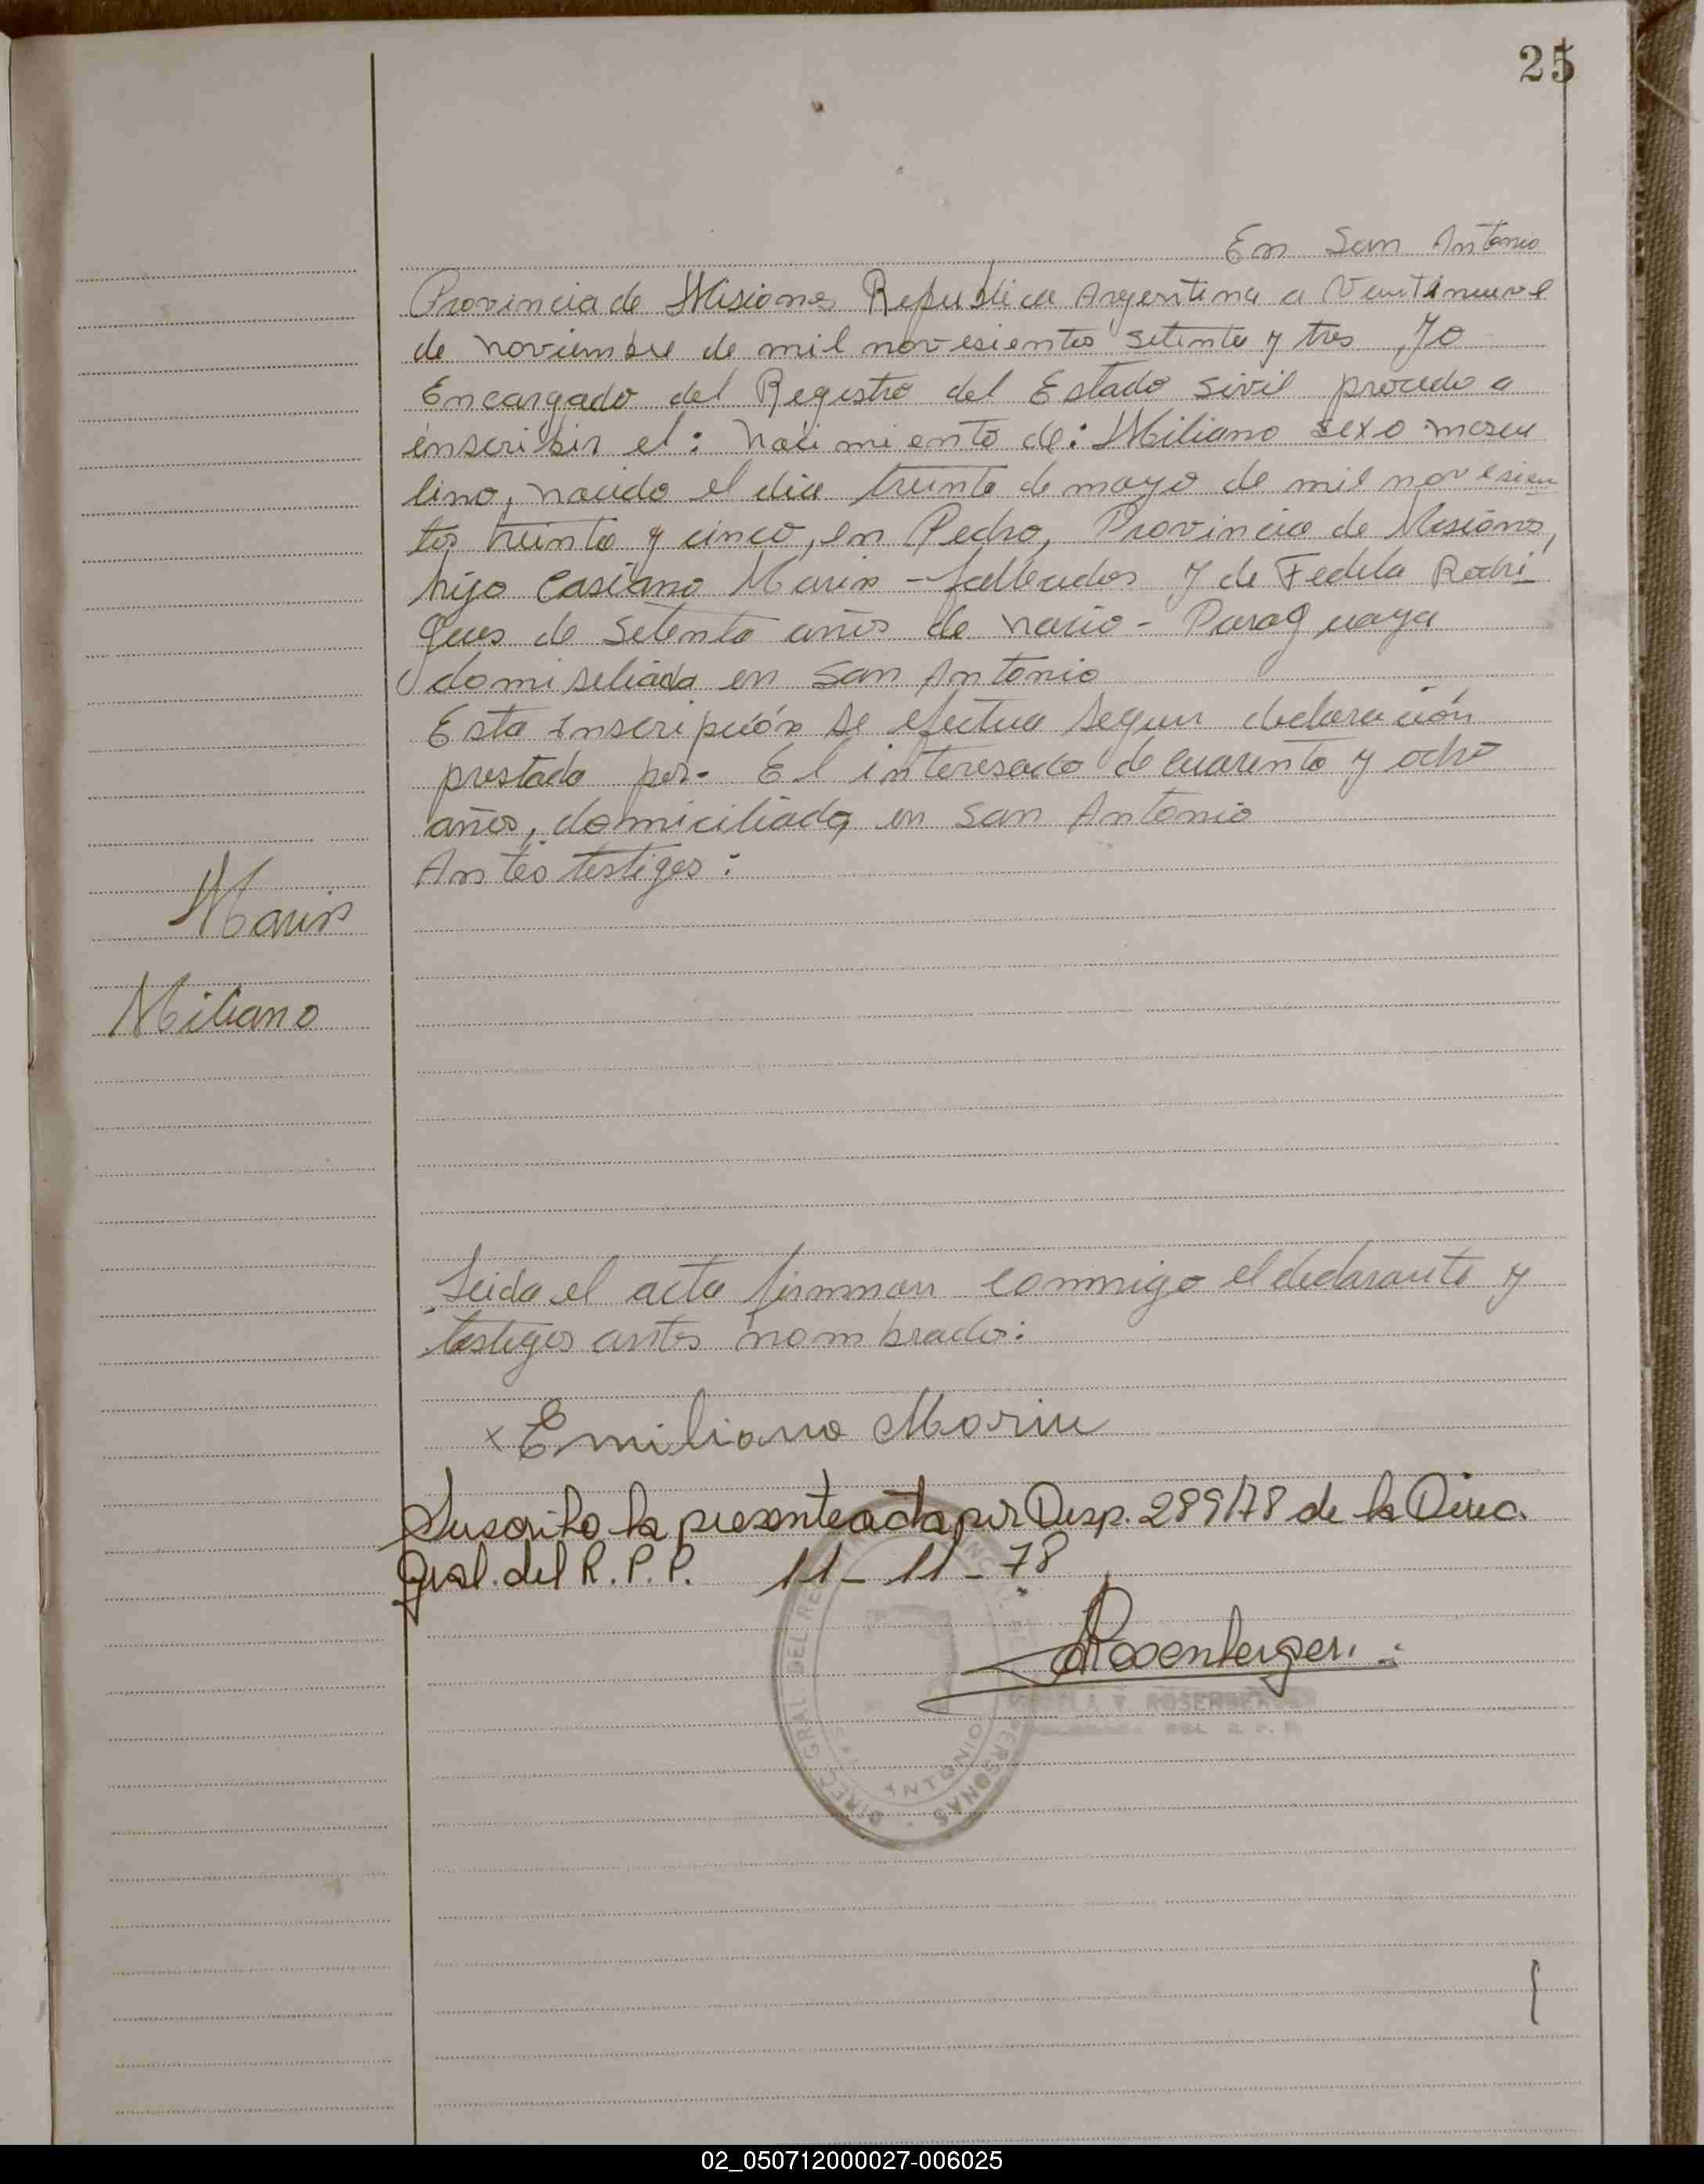 25
En San Antonio
Provincia de Misiones Republica Argentina a Veintinueve
de noviembre de mil novesientos setenta y tres Yo
Encargado del Registro del Estado sivil procedo a
inscribir el: nacimiento de: Miliano sexo mascu
lino, nacido el dia treinta de mayo de mil novesien
tos treinta y cinco, en Pedro, Provincia de Misiones,
hijo Casiano Marin - fallecidos y de Fedela Rodri
gues de setenta años de nacio - Paraguaya
domiseliada en San Antonio
Esta inscripción se efectua segun declaración
prestada por. El interesado de cuarenta y ocho
años, domiciliado en San Antonio
Antes testigos:
Marin
Miliano
Leida el acta firmman conmigo el declarante y
testigos antes nombrados:
x Emiliano Marin
Suscrito la presente acta por Disp. 289/78 de la Direc.
Gral. del R. P. P. 11-11-78
Rosenberger.
DIREC. GRAL. DEL PERSONAS
ANTONIO
ROSENBERGER
02_050712000027-006025